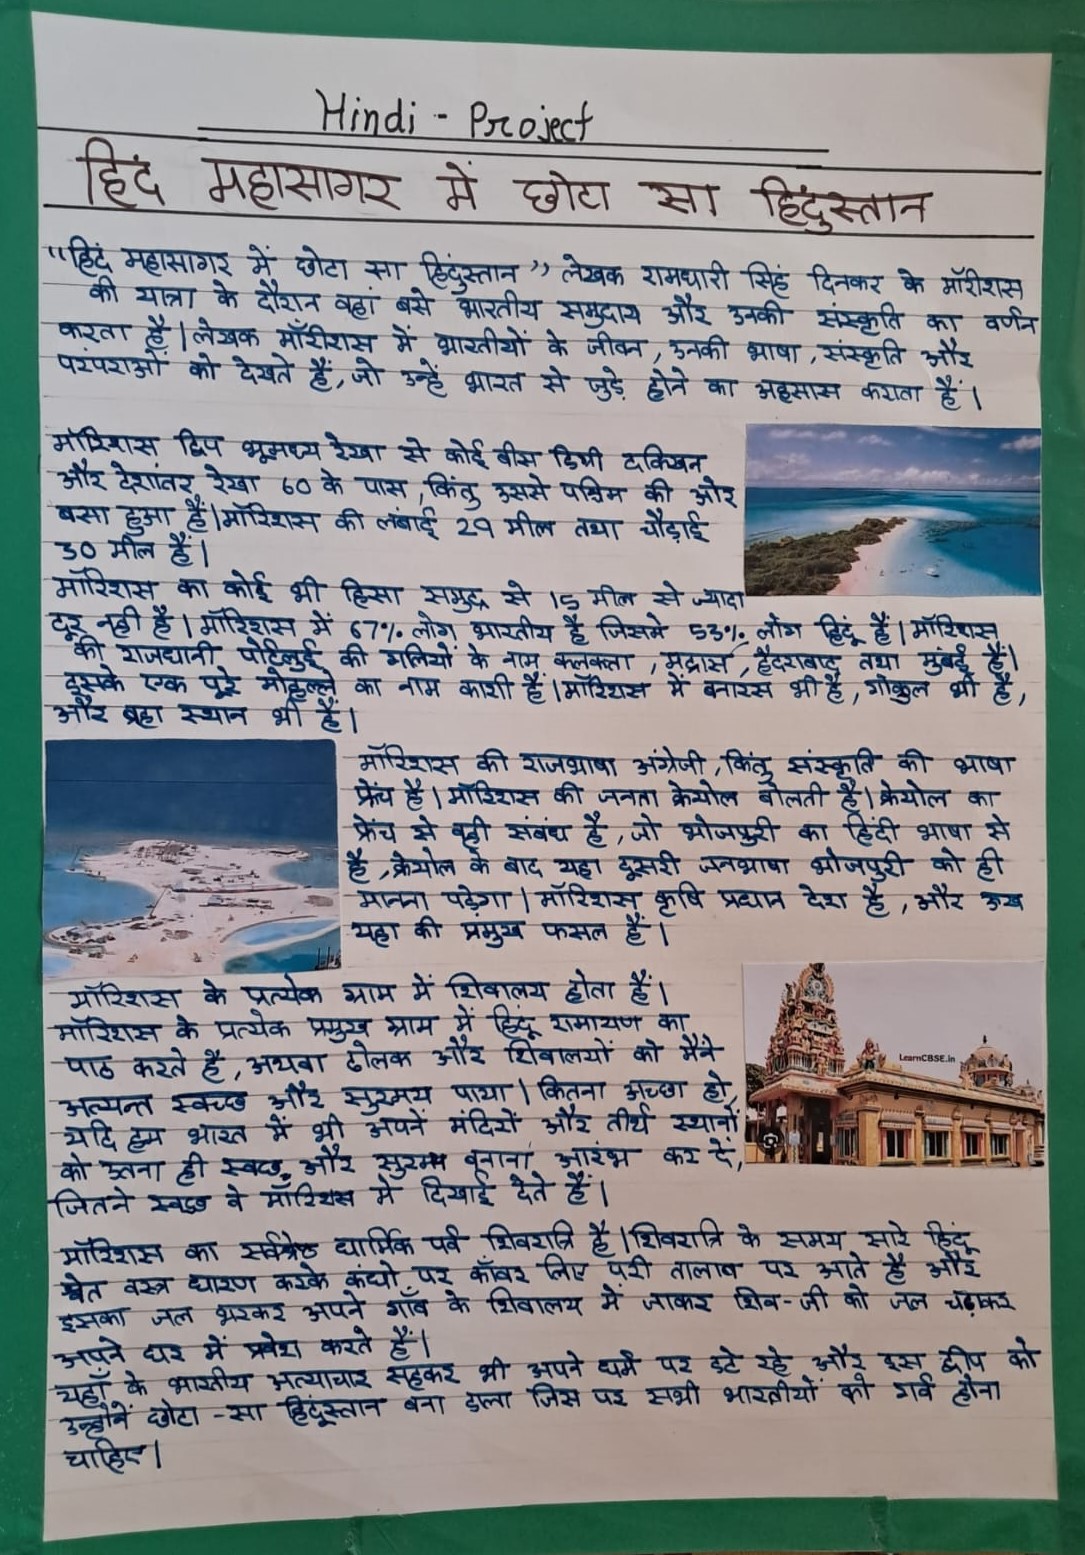 Hindi - Project
हिंद महासागर में छोटा सा हिंदुस्तान
"हिंद महासागर में छोटा सा हिंदुस्तान" लेखक रामधारी सिंह दिनकर के मॉरीशस
की यात्रा के दौरान वहां बसे भारतीय समुदाय और उनकी संस्कृति का वर्णन
करता है। लेखक मॉरीशस में भारतीयों के जीवन, उनकी भाषा, संस्कृति और
परंपराओं को देखते हैं, जो उन्हें भारत से जुड़े होने का अहसास कराता हैं।
मॉरिशस द्विप भूमध्य रेखा से कोई बीस डिग्री दक्खिन
और देशांतर रेखा 60 के पास, किंतु उससे पश्चिम की ओर
बसा हुआ हैं। मॉरिशस की लंबाई 29 मील तथा चौड़ाई
30 मील हैं।
मॉरिशस का कोई भी हिसा समुद्र से 15 मील से ज्यादा
दूर नही है। मॉरिशस में 67% लोग भारतीय है जिसमे 53% लोग हिंदू हैं। मॉरिशस
की राजधानी पोर्टलुई की गलियों के नाम कलकता, मद्रास, हैदराबाद तथा मुंबई हैं।
इसके एक पूरे मोहल्ले का नाम काशी हैं। मॉरिशस में बनारस भी है, गोकुल भी है,
और ब्रहा स्थान भी हैं।
मॉरिशस की राजभाषा अंग्रेजी, किंतु संस्कृति की भाषा
फ्रेंच है। मॉरिशस की जनता क्रेयोल बोलती है। क्रेयोल का
फ्रेंच से वही संबंध है, जो भोजपुरी का हिंदी भाषा से
है, क्रेयोल के बाद यहा दूसरी जनभाषा भोजपुरी को ही
मानना पड़ेगा। मॉरिशस कृषि प्रधान देश है, और ऊख
यहा की प्रमुख फसल हैं।
मॉरिशस के प्रत्येक ग्राम में शिवालय होता हैं।
मॉरिशस के प्रत्येक प्रमुख ग्राम में हिंदू रामायण का
पाठ करते है, अथवा ढोलक और शिवालयों को मैंने
LearnCBSE.in
अत्यन्त स्वच्छ और सुरम्य पाया। कितना अच्छा हो,
यदि हम भारत में भी अपने मंदिरों और तीर्थ स्थानों
को उतना ही स्वच्छ और सुरम्य बनाना आरंभ कर दें,
जितने स्वच्छ वे मॉरिशस में दिखाई देते हैं।
मॉरिशस का सर्वश्रेष्ठ धार्मिक पर्व शिवरात्रि है। शिवरात्रि के समय सारे हिंदू
श्वेत वस्त्र धारण करके कंधो पर काँवर लिए परी तालाब पर आते है और
इसका जल भरकर अपने गाँव के शिवालय में जाकर शिव-जी को जल चढ़ाकर
अपने घर में प्रवेश करते हैं।
यहाँ के भारतीय अत्याचार सहकर भी अपने धर्म पर डटे रहे और इस द्वीप को
उन्होंनें छोटा-सा हिंदुस्तान बना डाला जिस पर सभी भारतीयों को गर्व होना
चाहिए।